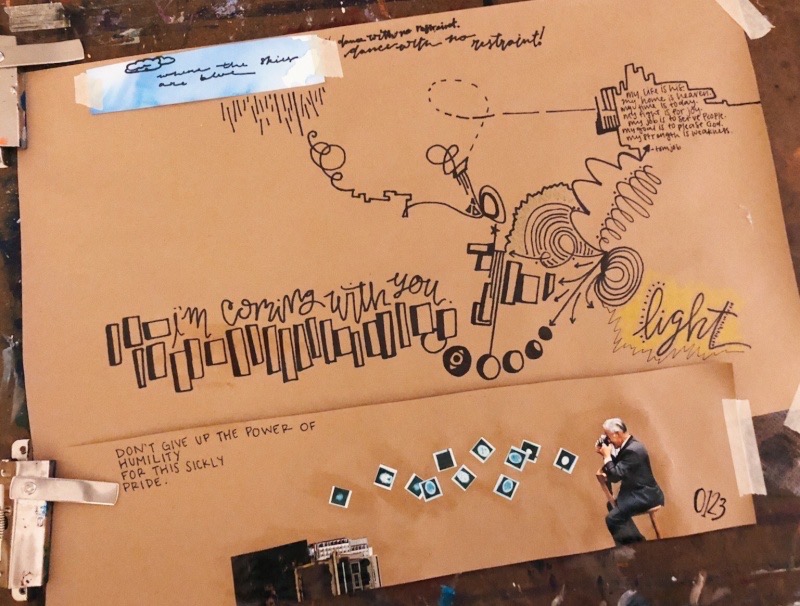 dance with no restraint.
dance with no restraint!
where the skies
are blue
my life is his.
my home is heaven.
my time is today.
my fight is for joy.
my job is to serve people.
my goal is to please God.
my strength is weakness.
i'm coming with you.
light
DON'T GIVE UP THE POWER OF
HUMILITY
FOR THIS SICKLY
PRIDE.
0123